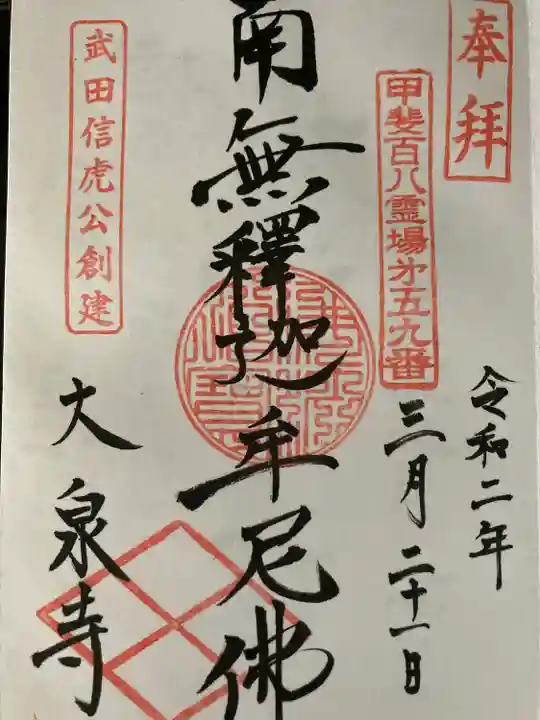 奉拝
令和二年
甲斐百八霊場才五九番
三月二十一日
南無釋迦牟尼佛
武田信虎公創建
大泉寺